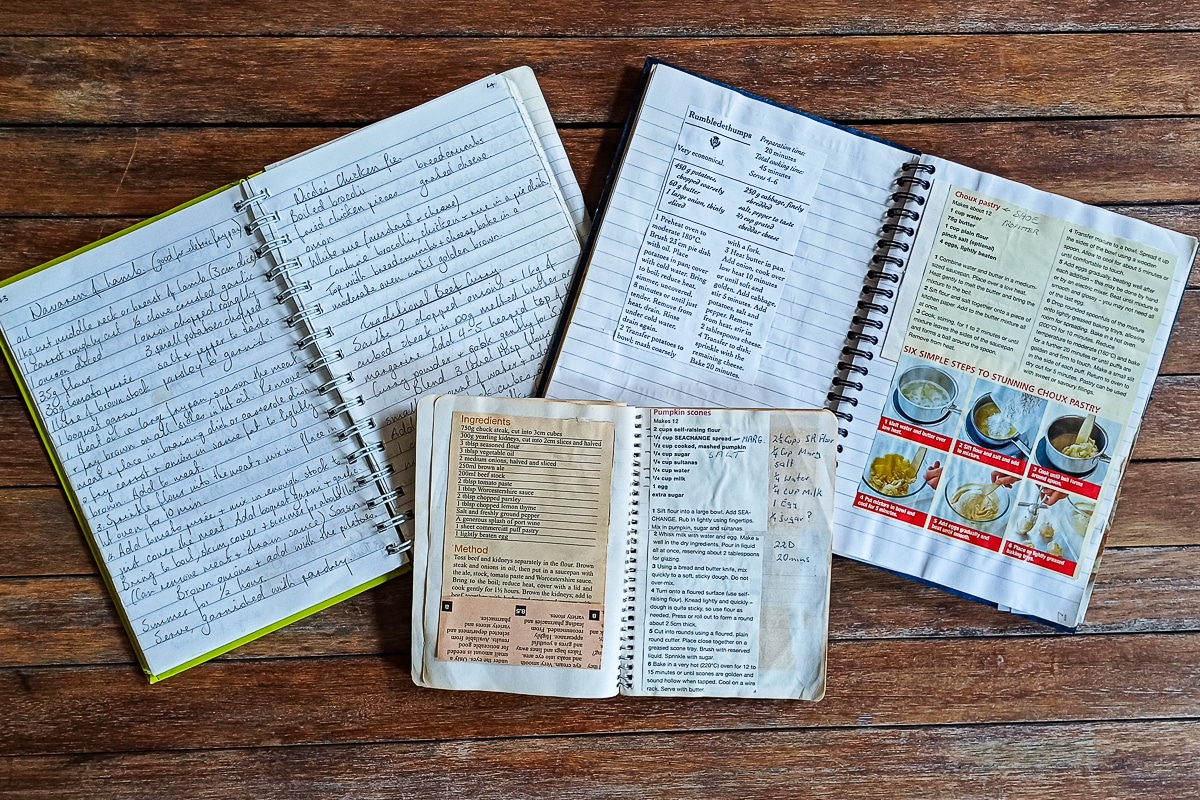 43
Navarin of Lamb. Good for defrosting
1kg cut middle neck or breast of lamb (3cm dice)
1 carrot roughly cut ½ clove crushed garlic
1 onion diced onion chopped roughly
35g flour 3 small potatoes chopped
30g tomato puree salt & pepper to taste
1 litre brown stock parsley to garnish
1 boquet garni
Heat oil in large frypan, season the meat
& fry brown on all sides in hot oil. Remove
meat & place in braising dish or casserole dish.
Fry carrot & onion in same pot to lightly
brown. Add to meat.
3. Sprinkle flour into meat & mix in. Place in
hot oven for
4 Add tomato puree & mix in enough stock to
just cover the meat. Add boquet garni & garlic.
Bring to boil, skim, cover & simmer for
(Can remove meat & strain sauce). Season
Brown onions & add with the potatoes.
Simmer for ½ hour
Serve, garnished with parsley
44
Chicken Pie
Boiled brocolli breadcumbs
Diced chicken pieces grated cheese
onion
White sauce (cheese)
Combine brocolli, chicken & sauce in a pie dish
Top with breadcumbs & cheese, bake in a
moderate oven until golden brown.
Traditional Beef Curry
Saute 2 chopped onions & 1 kg of
cubed steak in 60g melted butter or
margarine. Add 4-5 heaped tsp of
curry powder & cook gently for 5
Blend 3 level tbsp flour
Rumbledethumps
Very economical.
Preparation time:
20 minutes
Total cooking time:
45 minutes
Serves 4–6
450 g potatoes,
chopped coarsely
60 g butter
1 large onion, thinly
sliced
250 g cabbage, finely
shredded
salt, pepper to taste
2/3 cup grated
cheddar cheese
1 Preheat oven to
moderate 180°C.
Brush 23 cm pie dish
with oil. Place
potatoes in pan; cover
with cold water. Bring
to boil, reduce heat,
simmer, uncovered,
8 minutes or until just
tender. Remove from
heat, drain. Rinse
under cold water,
drain again.
2 Transfer potatoes to
bowl; mash coarsely
with a fork.
3 Heat butter in pan.
Add onion, cook over
low heat 10 minutes
until soft and
golden. Add cabbage,
stir 5 minutes. Add
potatoes, salt and
pepper. Remove
from heat, stir in
2 tablespoons cheese.
4 Transfer to dish;
sprinkle with the
remaining cheese.
Bake 20 minutes.
Choux pastry
Makes about 12
1 cup water
75g butter
1 cup plain flour
pinch salt (optional)
4 eggs, lightly beaten
1 Combine water and butter in a medium-
sized saucepan. Place over a low heat.
Heat gently to melt the butter and bring the
mixture to the boil.
2 Sift flour and salt together onto a piece of
kitchen paper. Add to the butter mixture all
at once.
3 Cook, stirring, for 1 to 2 minutes or until
mixture leaves the sides of the saucepan
and forms a ball around the spoon.
Remove from heat.
4 Transfer mixture to a bowl. Spread it up
the sides of the bowl using a wooden
spoon. Allow to cool for about 5 minutes or
until comfortable to touch.
5 Add eggs gradually, beating well after
each addition - this may be done by hand
or by an electric mixer. Beat until mixture is
smooth and glossy - you may not need all
of the last egg.
6 Drop rounded spoonfuls of the mixture
onto lightly greased baking trays, allowing
room for spreading. Bake in a hot oven
(200°C) for 10 minutes. Reduce
temperature to moderate (180°C) and bake
for a further 20 minutes or until puffs are
golden and firm to touch. Make a small slit
in the side of each puff. Return to oven to
dry out for 5 minutes. Pastry can be used
with sweet or savoury fillings.
SIX SIMPLE STEPS TO STUNNING CHOUX PASTRY
1 Melt water and butter over
low heat.
2 Sift flour and salt and add
to mixture.
3 Cook until ball forms
around spoon.
4 Put mixture in bowl and
cool for 5 minutes.
5 Add eggs gradually and
beat until smooth.
6 Place on lightly greased
baking trays.
Ingredients
750g chuck steak, cut into 3cm cubes
300g yearling kidneys, cut into 2cm slices and halved
2 tblsp seasoned flour
3 tblsp vegetable oil
2 medium onions, halved and sliced
250ml brown ale
200ml beef stock
2 tblsp tomato paste
1 tblsp Worcestershire sauce
2 tblsp chopped parsley
1 tblsp chopped lemon thyme
Salt and freshly ground pepper
A generous splash of port wine
1 sheet commercial puff pastry
1 lightly beaten egg
Method
Toss beef and kidneys separately in the flour. Brown
steak and onions in oil, then put in a saucepan with
the ale, stock, tomato paste and Worcestershire sauce.
Bring to the boil; reduce heat, cover with a lid and
cook gently for 1½ hours. Brown the kidneys, add to
8
8.5
8
under the eyes. Only a
small amount is needed
for noticeable good
results. Available from
selected department and
variety stores and
pharmacies.
eye cream. Very smooth
and soaks into eye area.
Takes bags lines away
and gives a youthful
appearance. Highly
recommended. From
leading pharmacies and
variety stores.
Pumpkin scones
Makes 12
2 cups self-raising flour
¼ cup SEACHANGE spread
¾ cup cooked, mashed pumpkin
¼ cup sugar
¼ cup sultanas
¼ cup water
¼ cup milk
1 egg
extra sugar
MARG.
SALT
1 Sift flour into a large bowl. Add SEA-
CHANGE. Rub in lightly using fingertips.
Mix in pumpkin, sugar and sultanas.
2 Whisk milk with water and egg. Make a
well in the dry ingredients. Pour in liquid
all at once, reserving about 2 tablespoons
for glazing.
3 Using a bread and butter knife, mix
quickly to a soft, sticky dough. Do not
over-mix.
4 Turn onto a floured surface (use self-
raising flour). Knead lightly and quickly –
dough is quite sticky, so use flour as
needed. Press or roll out to form a round
about 2.5cm thick.
5 Cut into rounds using a floured, plain
round cutter. Place close together on a
greased scone tray. Brush with reserved
liquid. Sprinkle with sugar.
6 Bake in a very hot (220°C) oven for 12 to
15 minutes or until scones are golden and
sound hollow when tapped. Cool on a wire
rack. Serve with butter.
2½ Cups SR Flour
¼ Cup Marg
Salt
¼ Water
¼ Cup Milk
1 Egg
¼ Sugar?
220
20 mins